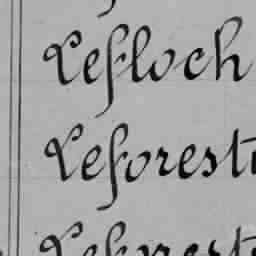 Lefloch
Leforesti